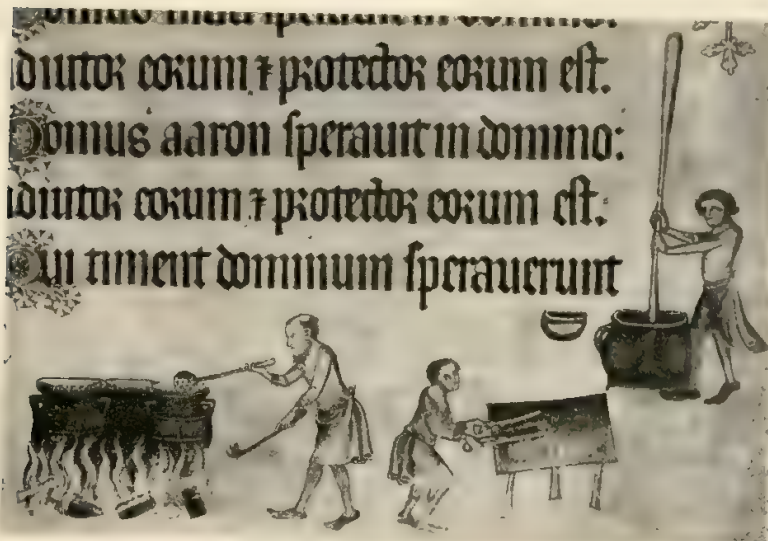 sperauit in domino:
diutor eorum ⁊ protector eorum est.
Domus aaron sperauit in domino:
diutor eorum ⁊ protector eorum est:
Qui timent dominum sperauerunt